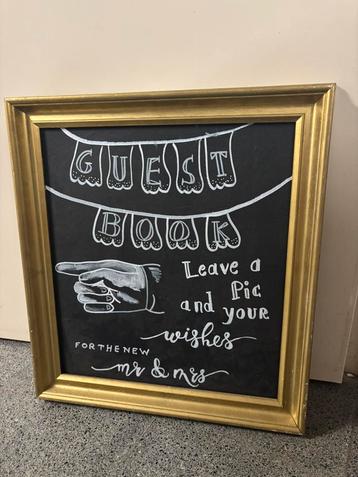 GUEST
BOOK
Leave a
Pic
and YOUR
wishes
FOR THE NEW
mr & mrs